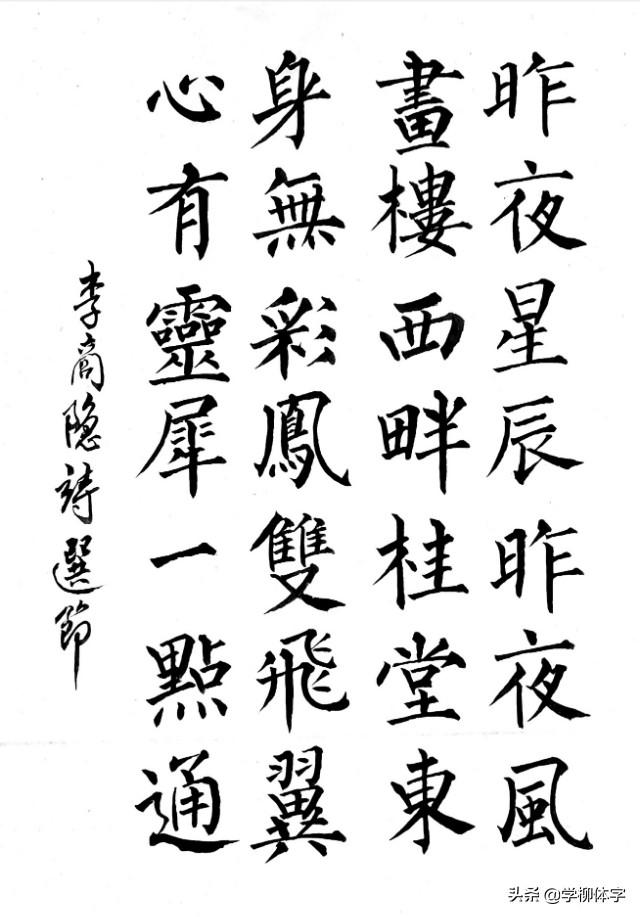 昨夜星辰昨夜風
畫樓西畔桂堂東
身無彩鳳雙飛翼
心有靈犀一點通
李商隐詩選節
头条 @学柳体字